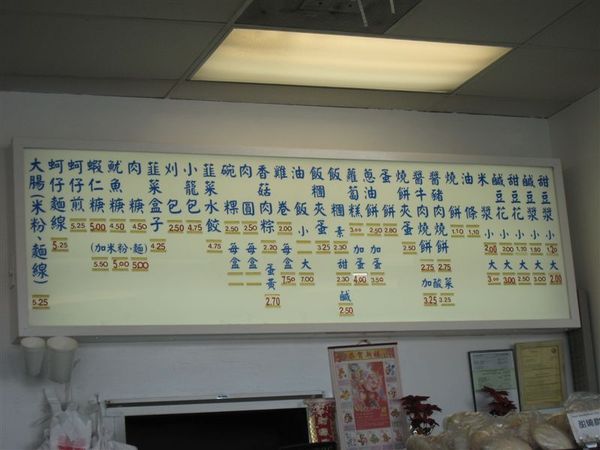 大腸(米粉,麵線) 5.25
蚵仔麵線 5.25
蚵仔煎 5.25
蝦仁焿 5.00
魷魚焿 4.50
肉焿 4.50
(加米粉,麵) 5.50 5.00 5.00
韮菜盒子
刈包 2.50
小籠包 4.75
韮菜水餃 4.75
碗粿 2.50
肉圓 2.50
每盒
每盒
香菇肉粽 2.20
蛋黃 2.70
雞卷 2.00
油飯 小 大 7.50 7.00
飯糰夾蛋
飯糰 素 甜 鹹 2.50
蘿蔔糕
加蛋 4.00
蔥油餅 2.50
加蛋 3.50
蛋餅 2.80
燒餅夾蛋
醬牛肉燒餅 2.75
醬豬肉燒餅 2.75
加酸菜 3.25 3.25
燒餅 1.10
油條 1.10
米漿 小 2.00 大 3.00
鹹豆花 小 大 3.00
甜豆花 小 大 2.50
鹹豆漿 小 大 2.50
甜豆漿 小 大 2.00
恭賀新禧